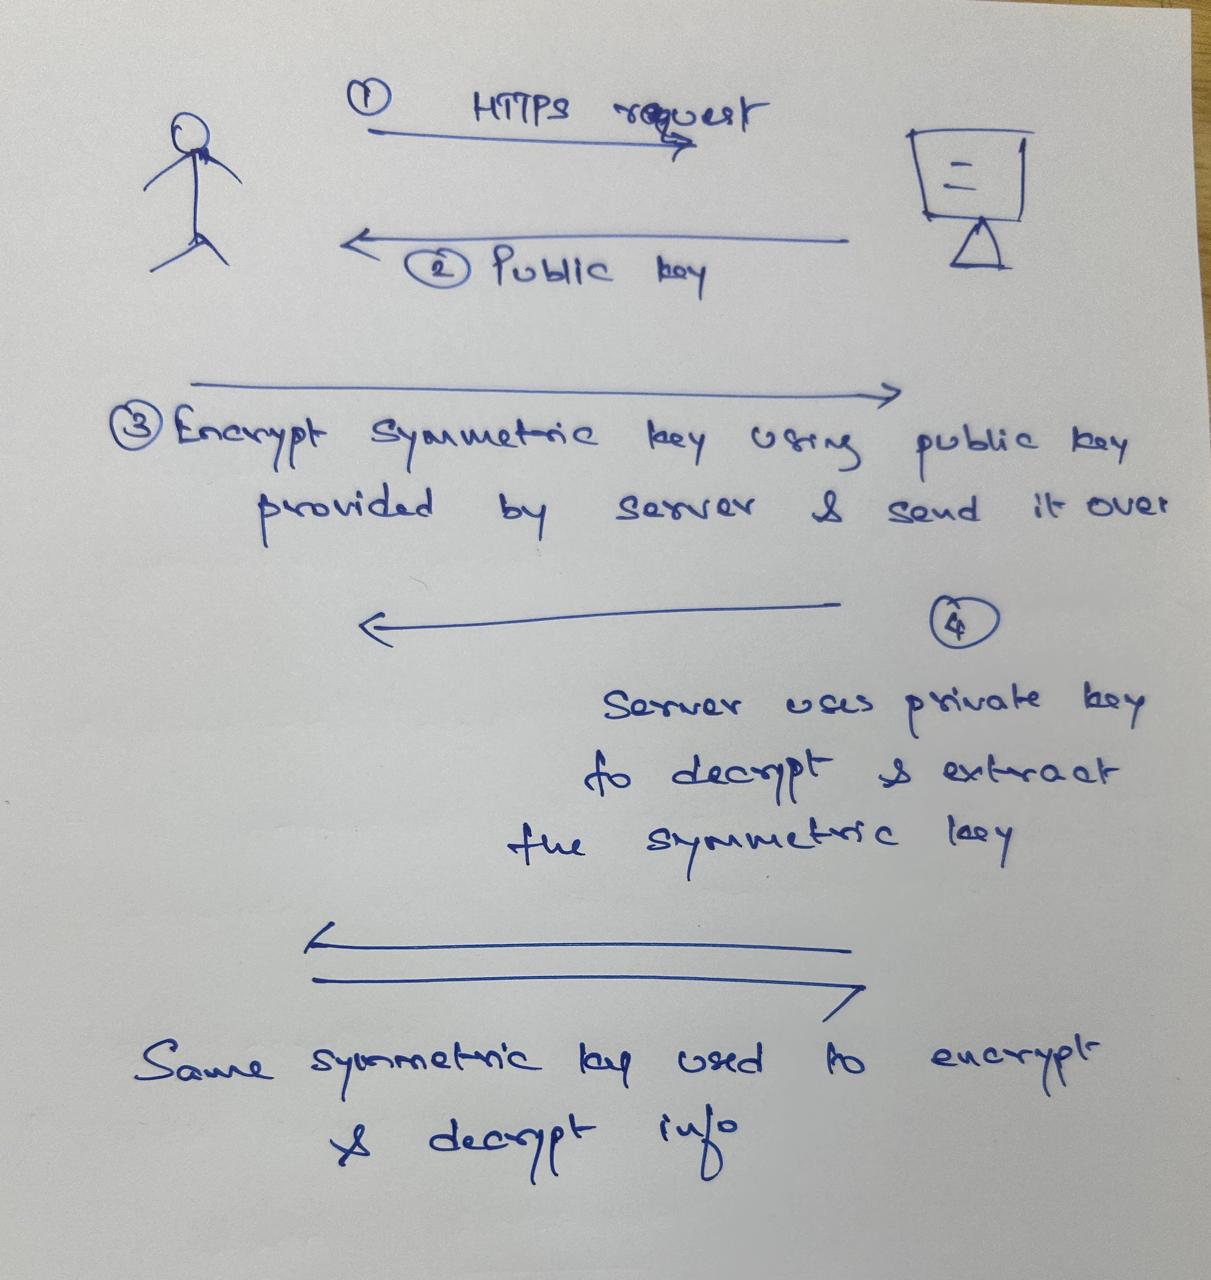 ① HTTPS request
② Public key
③ Encrypt symmetric key using public key
provided by server & send it over
④
Server uses private key
to decrypt & extract
the symmetric key
Same symmetric key used to encrypt
& decrypt info